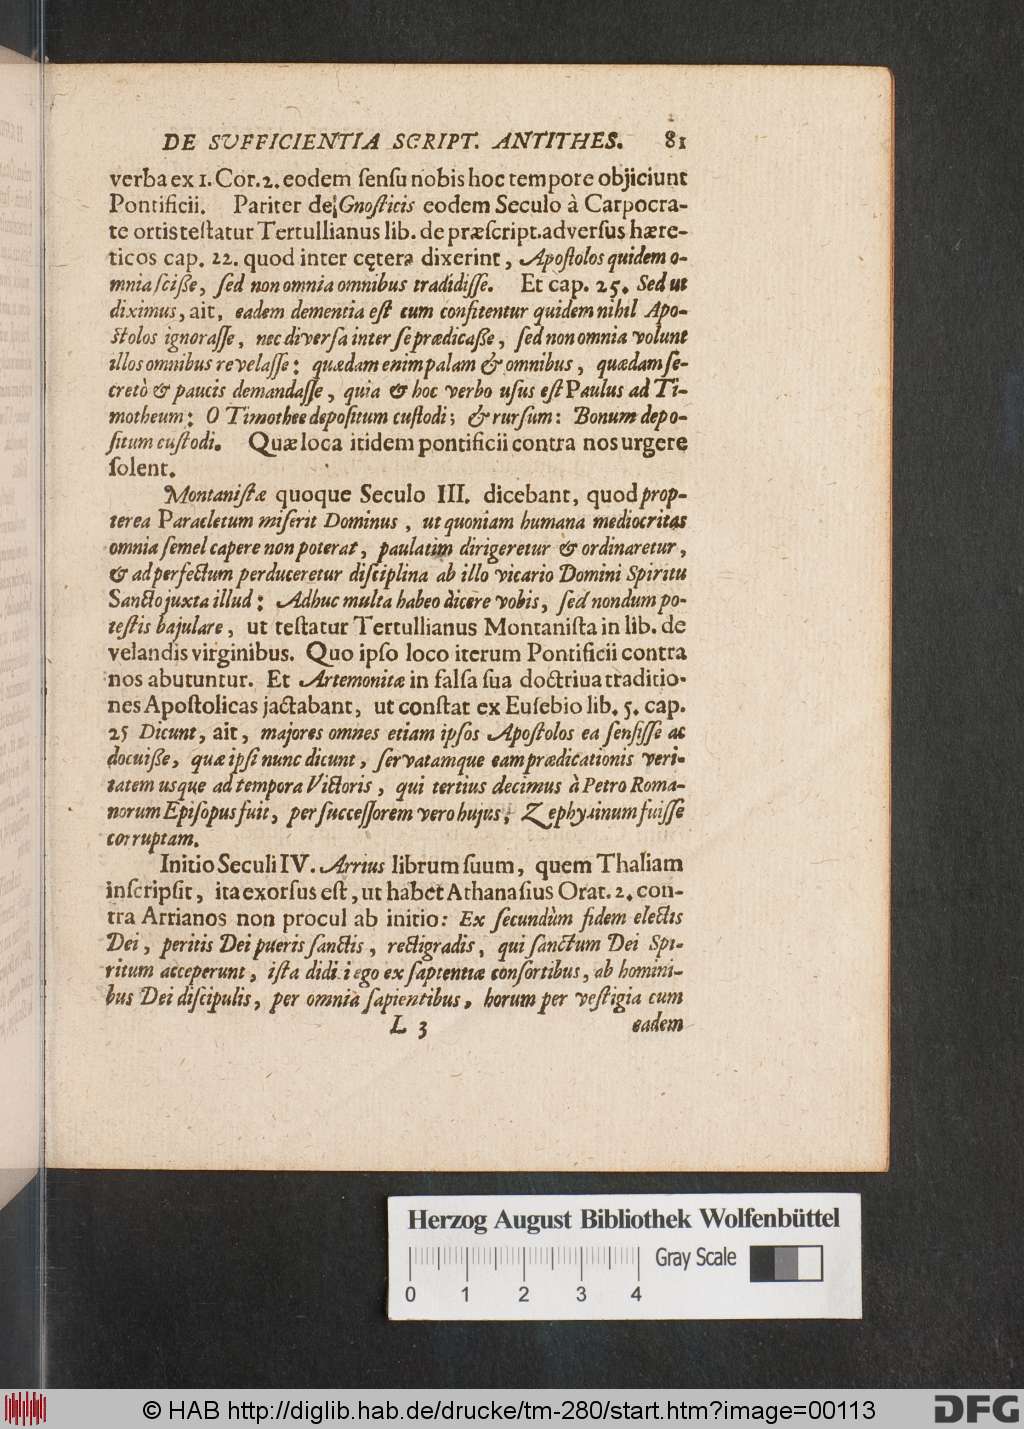 DE SVFFICIENTIA SCRIPT. ANTITHES. 81
verba ex 1. Cor. 2. eodem ſenſu nobis hoc tempore objiciunt
Pontificii. Pariter de Gnoſticis eodem Seculo à Carpocra-
te ortis teſtatur Tertullianus lib. de præſcript. adverſus hære-
ticos cap. 22. quod inter cętera dixerint, Apoſtolos quidem o-
mnia ſciſſe, ſed non omnia omnibus tradidiſſe. Et cap. 25. Sed ut
diximus, ait, eadem dementia eſt cum confitentur quidem nihil Apo-
ſtolos ignoraſſe, nec diverſa inter ſe prædicaſſe, ſed non omnia volunt
illos omnibus revelaſſe: quædam enim palam & omnibus, quædam ſe-
cretò & paucis demandaſſe, quia & hoc verbo uſus eſt Paulus ad Ti-
motheum: O Timothee depoſitum cuſtodi; & rurſum: Bonum depo-
ſitum cuſtodi. Quæ loca itidem pontificii contra nos urgere
ſolent.
Montaniſtæ quoque Seculo III. dicebant, quod prop-
terea Paracletum miſerit Dominus, ut quoniam humana mediocritas
omnia ſemel capere non poterat, paulatim dirigeretur & ordinaretur,
& ad perfectum perduceretur diſciplina ab illo vicario Domini Spiritu
Sancto juxta illud: Adhuc multa habeo dicere vobis, ſed nondum po-
teſtis bajulare, ut teſtatur Tertullianus Montaniſta in lib. de
velandis virginibus. Quo ipſo loco iterum Pontificii contra
nos abutuntur. Et Artemonitæ in falſa ſua doctriua traditio-
nes Apoſtolicas jactabant, ut conſtat ex Euſebio lib. 5. cap.
25 Dicunt, ait, majores omnes etiam ipſos Apoſtolos ea ſenſiſſe ac
docuiſſe, quæ ipſi nunc dicunt, ſervatamque eam prædicationis veri-
tatem usque ad tempora Victoris, qui tertius decimus à Petro Roma-
norum Epiſopus fuit, per ſucceſſorem vero hujus, Zephyrinum fuiſſe
corruptam.
Initio Seculi IV. Arrius librum ſuum, quem Thaliam
inſcripſit, ita exorſus eſt, ut habet Athanaſius Orat. 2. con-
tra Arrianos non procul ab initio: Ex ſecundùm fidem electis
Dei, peritis Dei pueris ſanctis, rectigradis, qui ſanctum Dei Spi-
ritum acceperunt, iſta didici ego ex ſapientiæ conſortibus, ab homini-
bus Dei diſcipulis, per omnia ſapientibus, horum per veſtigia cum
L 3 eadem
Herzog August Bibliothek Wolfenbüttel
Gray Scale
0 1 2 3 4
© HAB http://diglib.hab.de/drucke/tm-280/start.htm?image=00113
DFG